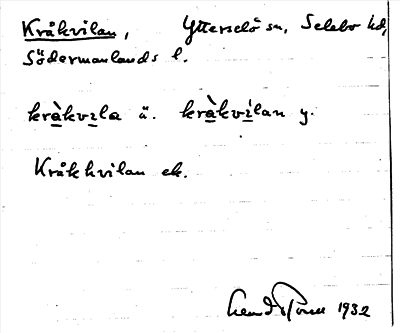 Kråkvilan, Ytterselö sn, Selebo hd,
Södermanlands l.
kràkvi̲la ä. kràkvílan y.
Kråkhvilan ek.
1932